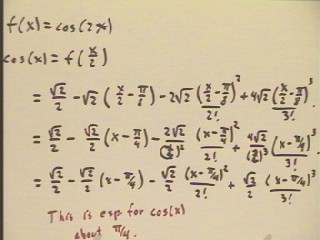 f(x) = cos(2x)
cos(x) = f(x/2)
= √2/2 - √2 (x/2 - π/8) - 2√2 (x/2 - π/8)²/2! + 4√2 (x/2 - π/8)³/3! .
= √2/2 - √2/2 (x - π/4) - 2√2/(2)² (x - π/4)²/2! + 4√2/(2)³ (x - π/4)³/3! .
= √2/2 - √2/2 (x - π/4) - √2/2 (x - π/4)²/2! + √2/2 (x - π/4)³/3!
This is exp for cos(x)
about π/4.